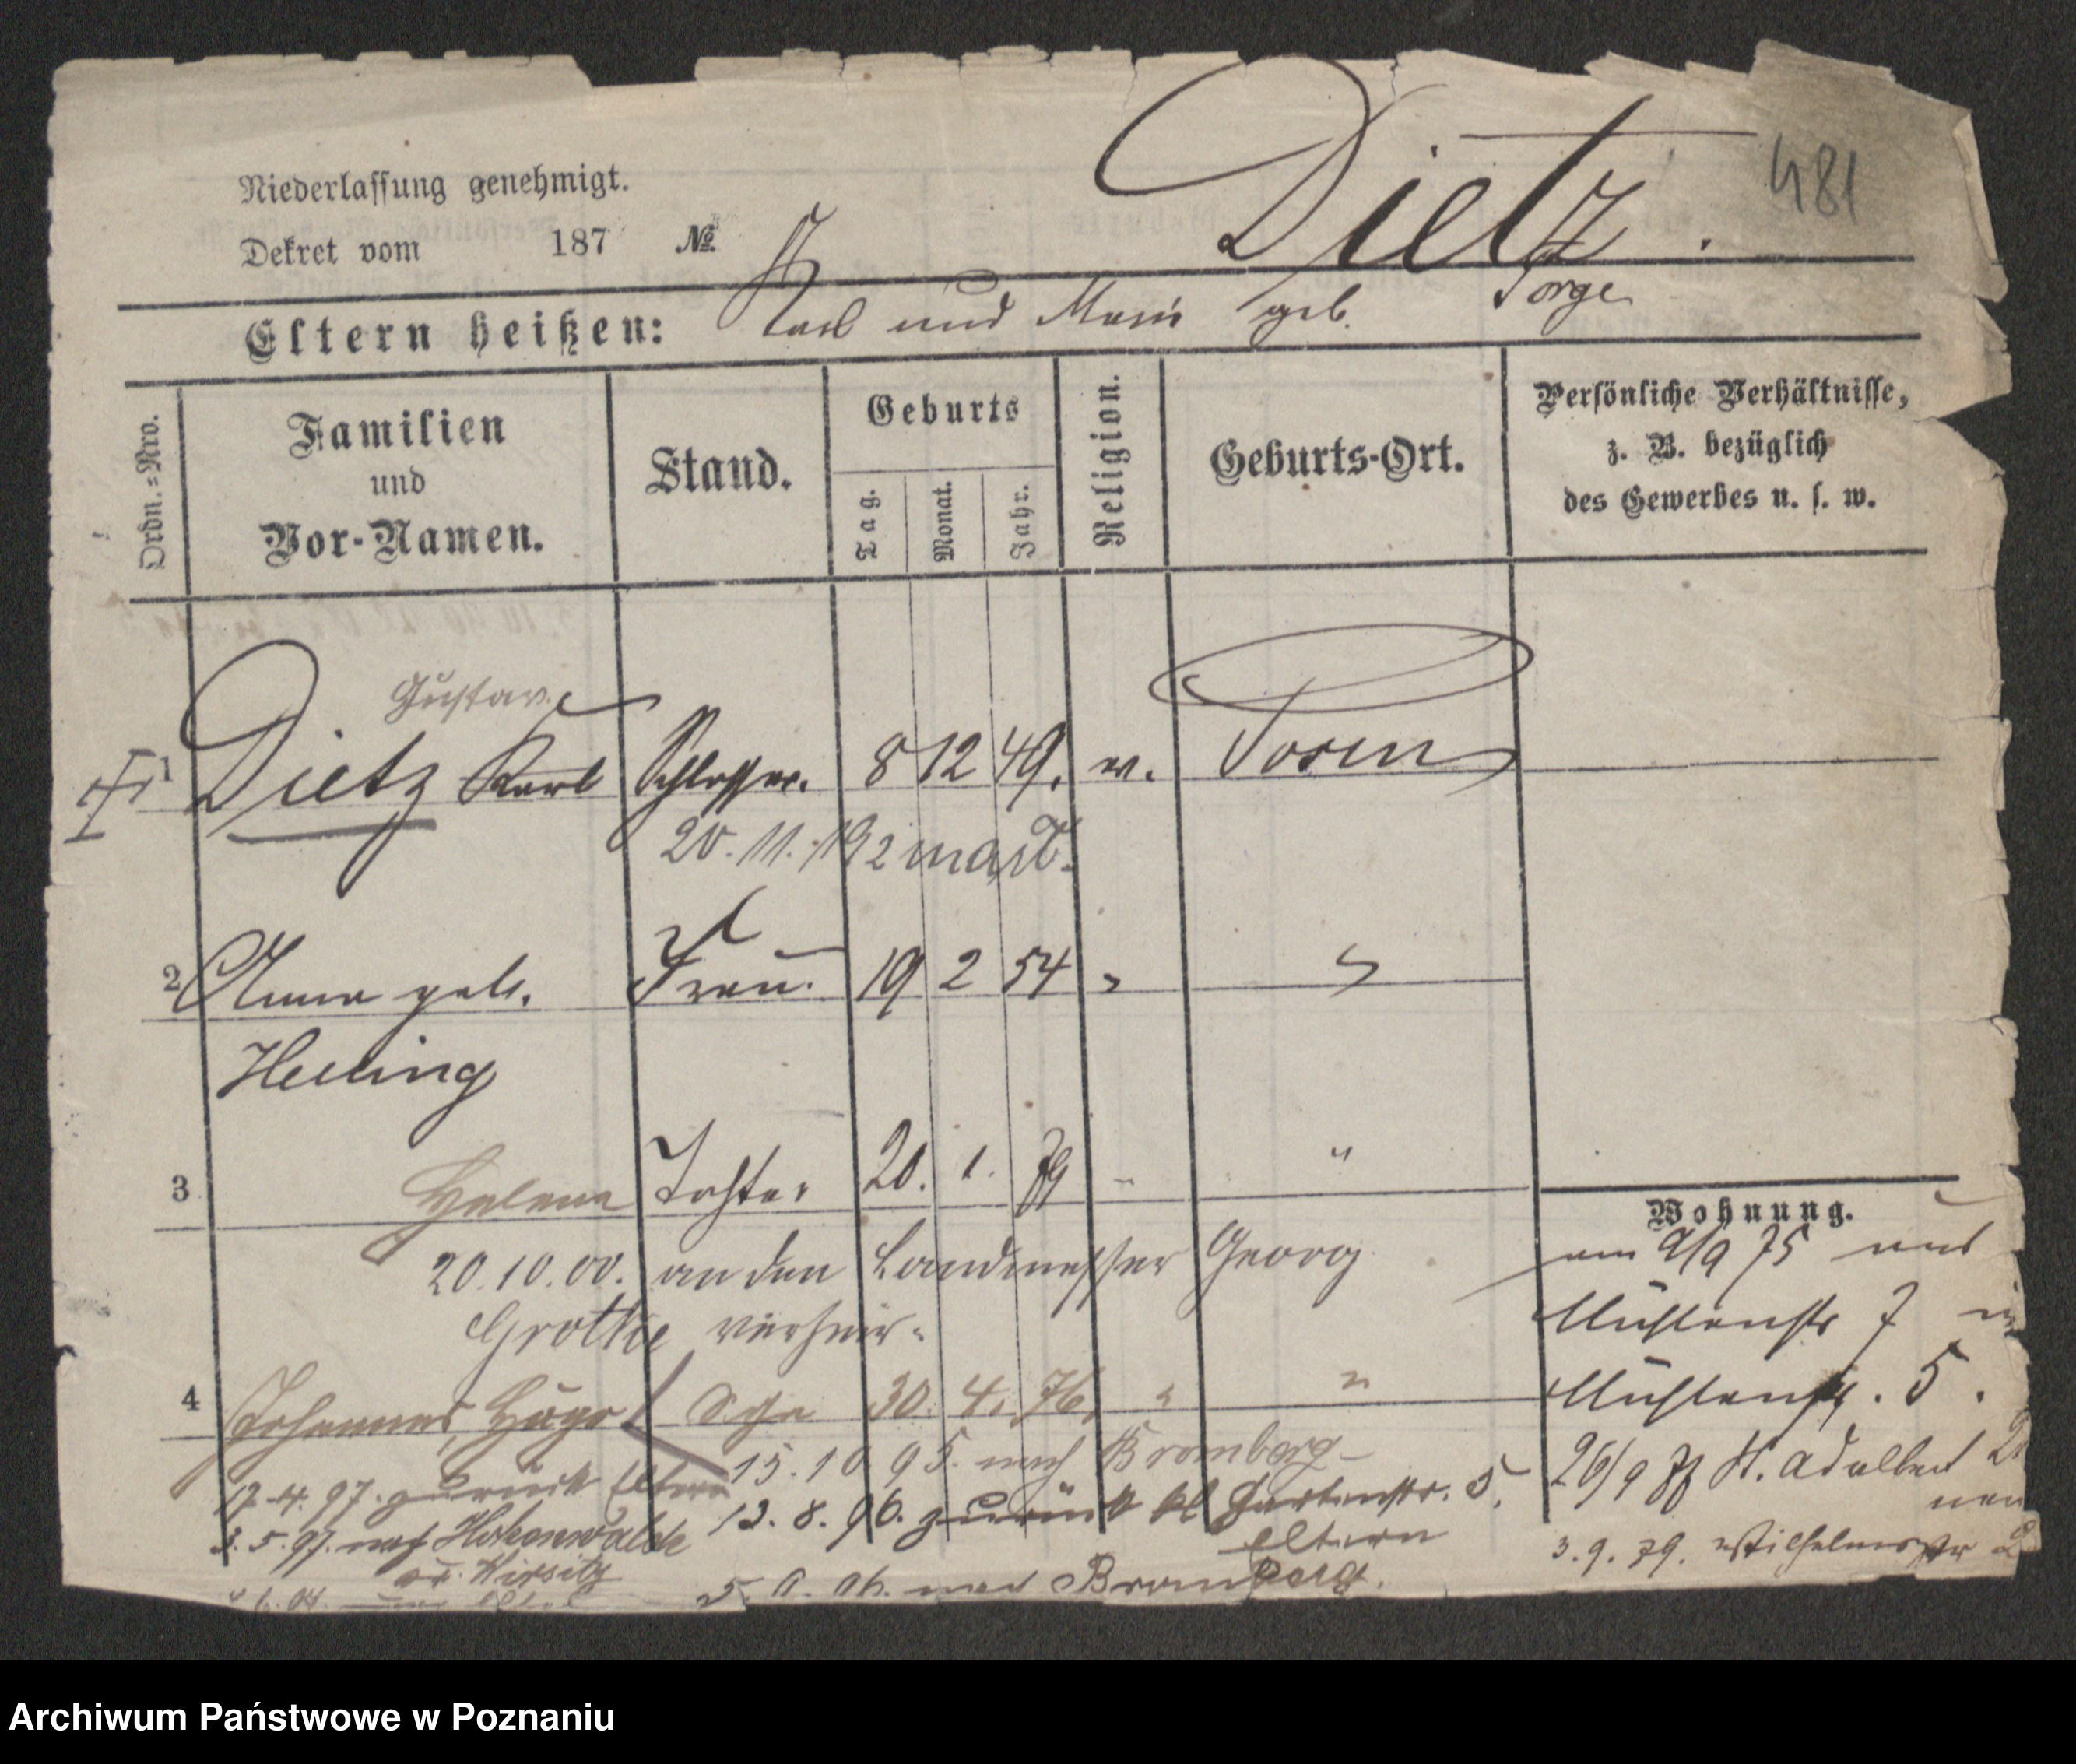 481
Dietz.
Niederlassung genehmigt.
Dekret vom 187 №
Eltern heißen: Karl und Marie geb. Sorge
Ordn.=Nro.
Familien
und
Vor-Namen.
Stand.
Geburts
Tag.
Monat.
Jahr.
Religion.
Geburts-Ort.
Persönliche Verhältnisse,
z. B. bezüglich
des Gewerbes u. s. w.
Gustav
1 Dietz Karl Schlosser. 8 12 49. ev. Posen
20. 11.
2 Anna geb. Frau. 19 2 54 "
3 Helene Tochter 20. 1. 79 " "
20.10.00. an den Landmesser Georg
Grothe verheir.
4 Johannes, Hugo Sohn 30. 4. 76. " "
15.10 95. nach Bromberg
17.4.97. zurück Eltern
13.8.96. zurück kl Gartenstr. 5.
Eltern
3.5.97. nach Hohenwalde
Kr. Wirsitz
nach Bromberg.
Wohnung.
am 9/9 75 aus
Mühlenstr 7
Mühlenstr. 5.
26/9 77 St. Adalbert
3.9.79. Wilhelmstr
Archiwum Państwowe w Poznaniu